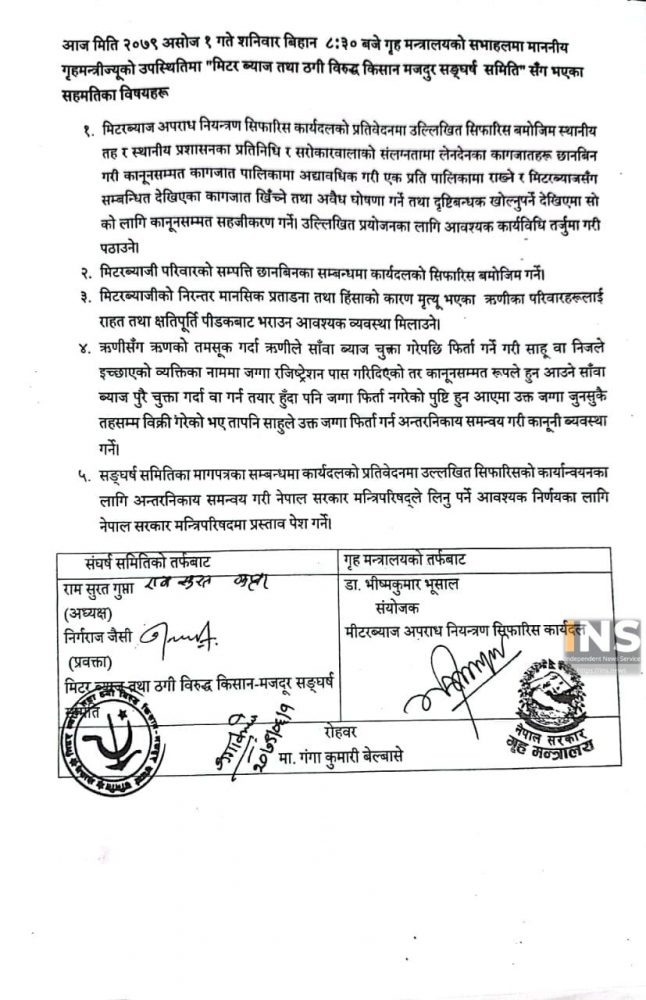 आज मिति २०७९ असोज १ गते शनिवार बिहान ८:३० बजे गृह मन्त्रालयको सभाहलमा माननीय
गृहमन्त्रीज्यूको उपस्थितिमा "मिटर ब्याज तथा ठगी विरुद्ध किसान मजदुर सङ्घर्ष समिति" सँग भएका
सहमतिका विषयहरू
१. मिटरब्याज अपराध नियन्त्रण सिफारिस कार्यदलको प्रतिवेदनमा उल्लिखित सिफारिस बमोजिम स्थानीय
तह र स्थानीय प्रशासनका प्रतिनिधि र सरोकारवालाको संलग्नतामा लेनदेनका कागजातहरू छानबिन
गरी कानूनसम्मत कागजात पालिकामा अद्यावधिक गरी एक प्रति पालिकामा राख्ने र मिटरब्याजसँग
सम्बन्धित देखिएका कागजात खिँच्ने तथा अवैध घोषणा गर्ने तथा दृष्टिबन्धक खोल्नुपर्ने देखिएमा सो
को लागि कानूनसम्मत सहजीकरण गर्ने। उल्लिखित प्रयोजनका लागि आवश्यक कार्यविधि तर्जुमा गरी
पठाउने।
२. मिटरब्याजी परिवारको सम्पत्ति छानबिनका सम्बन्धमा कार्यदलको सिफारिस बमोजिम गर्ने।
३. मिटरब्याजीको निरन्तर मानसिक प्रताडना तथा हिंसाको कारण मृत्यू भएका ऋणीका परिवारहरूलाई
राहत तथा क्षतिपूर्ति पीडकबाट भराउन आवश्यक व्यवस्था मिलाउने।
४. ऋणीसँग ऋणको तमसूक गर्दा ऋणीले साँवा ब्याज चुक्ता गरेपछि फिर्ता गर्ने गरी साहू वा निजले
इच्छाएको व्यक्तिका नाममा जग्गा रजिष्ट्रेशन पास गरिदिएको तर कानूनसम्मत रूपले हुन आउने साँवा
ब्याज पुरै चुक्ता गर्दा वा गर्न तयार हुँदा पनि जग्गा फिर्ता नगरेको पुष्टि हुन आएमा उक्त जग्गा जुनसुकै
तहसम्म विक्री गरेको भए तापनि साहुले उक्त जग्गा फिर्ता गर्न अन्तरनिकाय समन्वय गरी कानूनी ब्यवस्था
गर्ने।
५. सङ्घर्ष समितिका मागपत्रका सम्बन्धमा कार्यदलको प्रतिवेदनमा उल्लखित सिफारिसको कार्यान्वयनका
लागि अन्तरनिकाय समन्वय गरी नेपाल सरकार मन्त्रिपरिषद्ले लिनु पर्ने आवश्यक निर्णयका लागि
नेपाल सरकार मन्त्रिपरिषदमा प्रस्ताव पेश गर्ने।
संघर्ष समितिको तर्फबाट
राम सुरत गुप्ता राम सुरत गुप्ता
(अध्यक्ष)
निर्गराज जैसी
(प्रवक्ता)
मिटर ब्याज तथा ठगी विरुद्ध किसान-मजदूर सङ्घर्ष
समिति
गृह मन्त्रालयको तर्फबाट
डा. भीष्मकुमार भूसाल
संयोजक
मीटरब्याज अपराध नियन्त्रण सिफारिस कार्यदल
INS
Independent News Service
https://ins.news
नेपाल सरकार
गृह मन्त्रालय
२०७९/०६/१
रोहवर
मा. गंगा कुमारी बेल्बासे